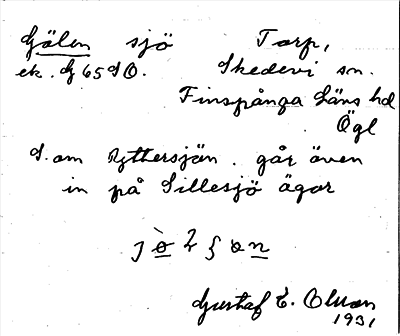 Gölen sjö Torp,
ek. G 65 SO. Skedevi sn.
Finspånga Läns hd
Ögl
S. om Yttersjön. går även
in på Sillesjö ägor
Gustaf E. Olsson
1931